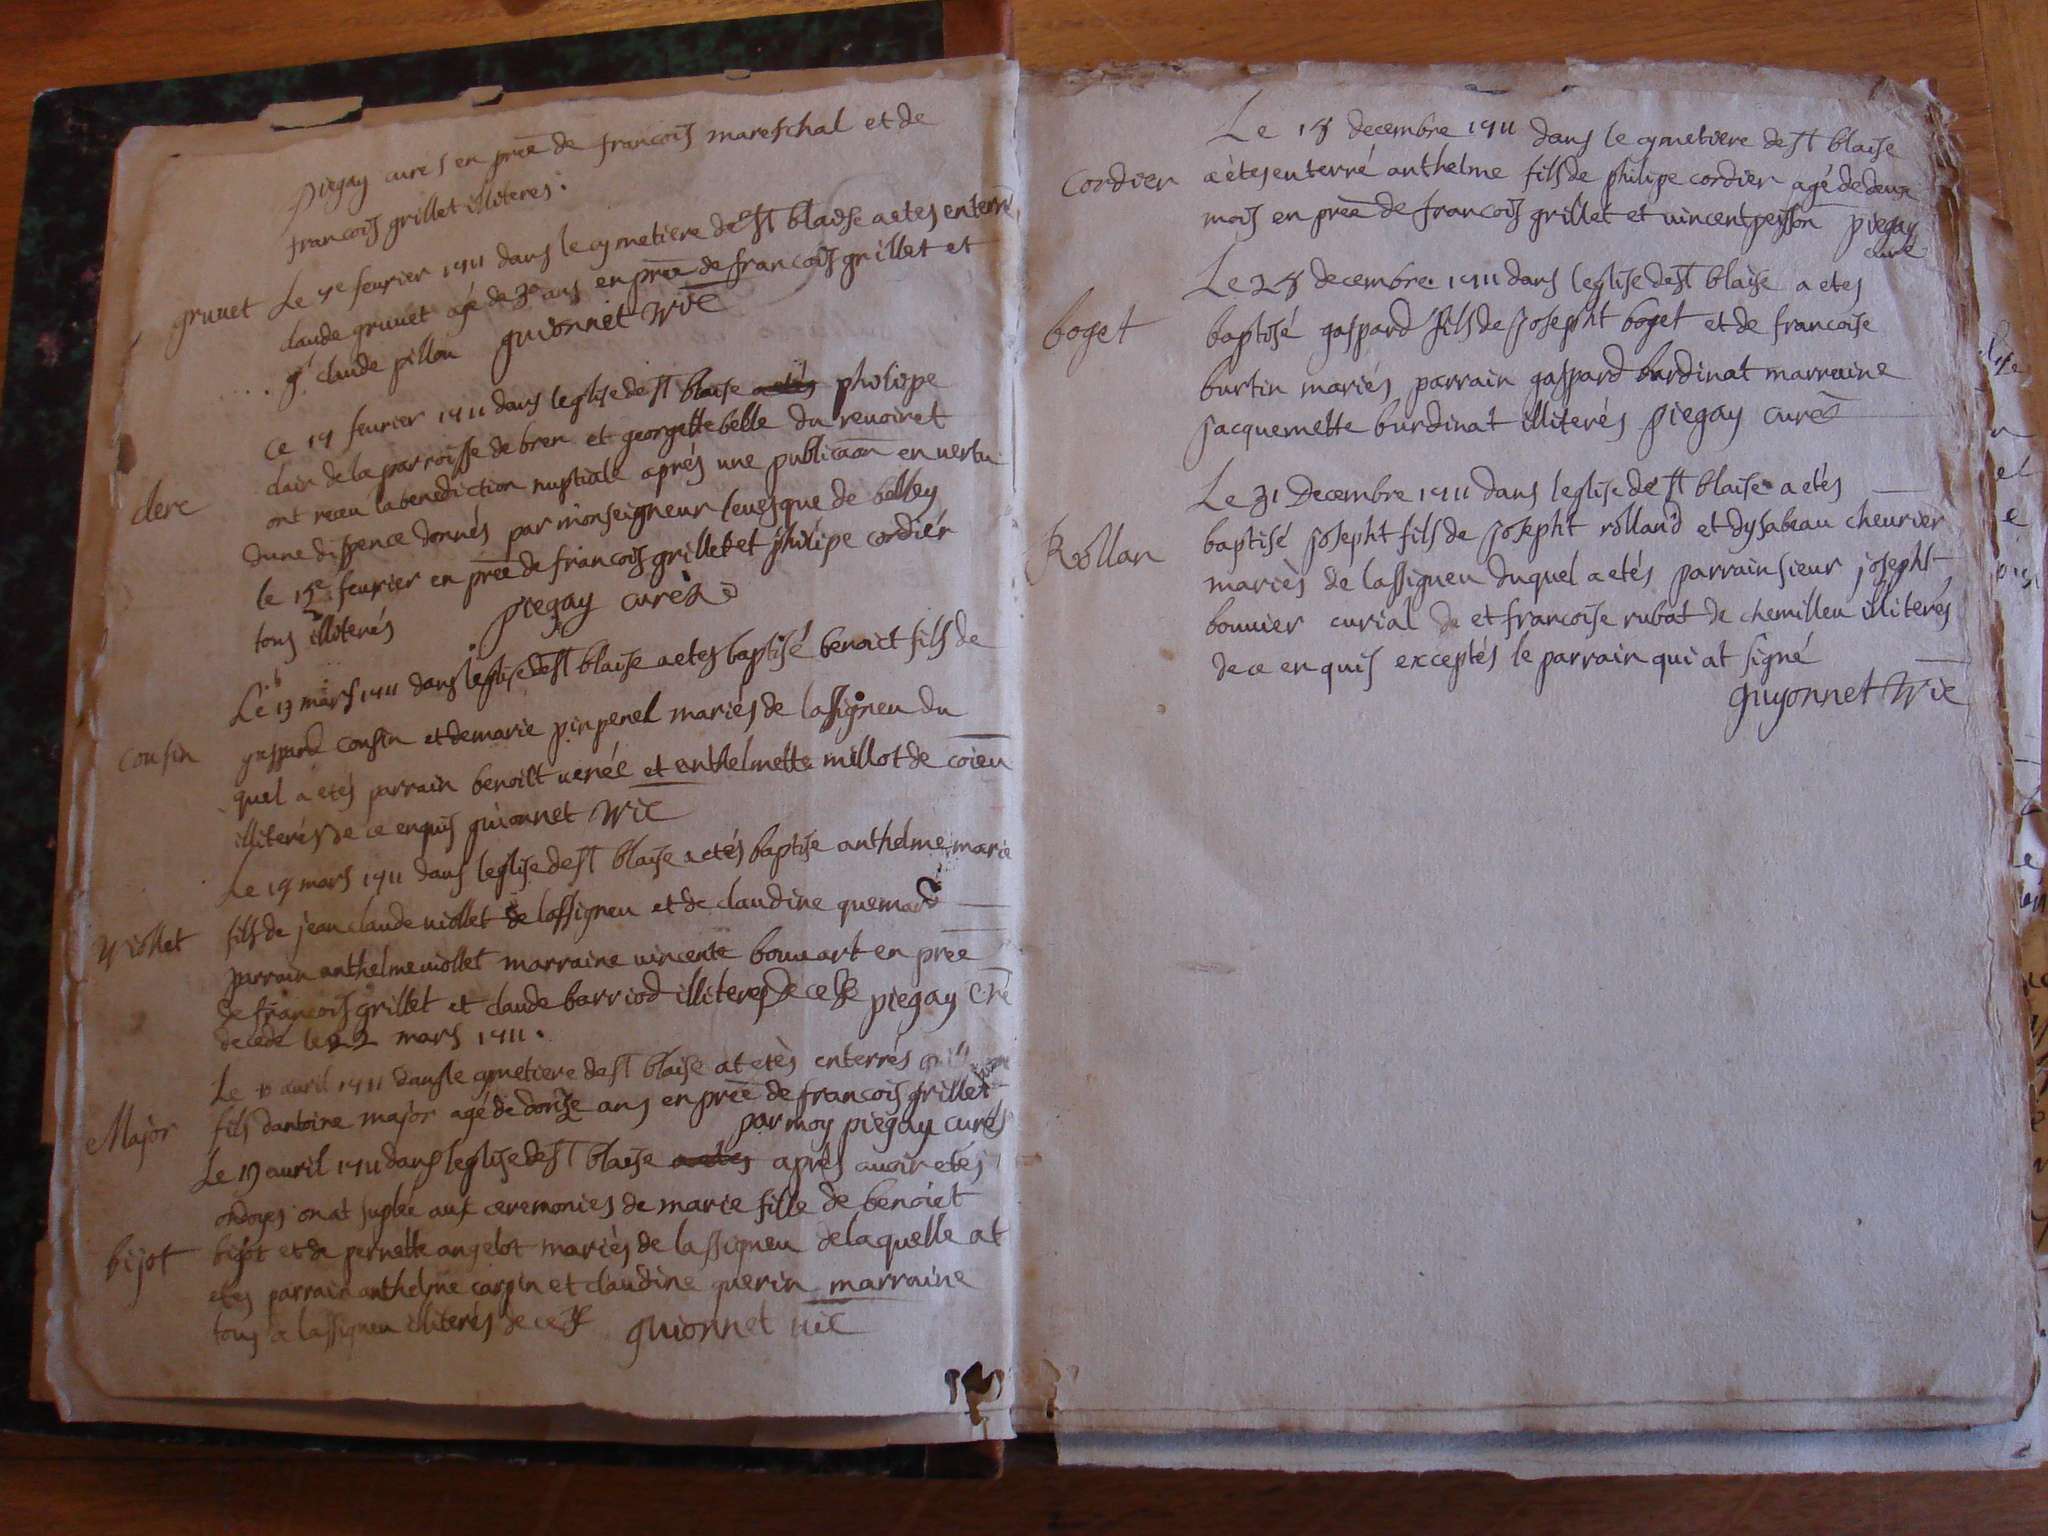 piegay cures en pree de francois mareschal et de
francois grillet illiteres.
gruuet Le 7e feurier 1711 dans le cymetiere de st blaise a etes enterré
claude gruuet agé de 30 ans en pree de francois grillet et
claude pillon guionnet vic
Ce 17 feurier 1711 dans leglise de st blaise a etés philipe
clerc clair de la parroisse de bren et georgette belle du reuoiret
ont receu la benediction nuptialle aprés une publicaon en uertu
dune dispence donnés par monseigneur leuesque de belley
le 15e feurier en pree de francois grillet et philipe cordiér
tous illiterés piegay curés
Le 13 mars 1711 dans leglise de st blaise a etes baptisé benoict fils de
cousin gaspard cousin et de marie pinpenel mariés de lassigneu du
quel a etés parrain benoict uenée et enthelmette millot de coieu
illiterés de ce enquis guionnet vic
Le 19 mars 1711 dans leglise de st blaise a etés baptise anthelme marie
Viollet fils de jean claude uiollet de lassigneu et de claudine quemard
parrain anthelme uiollet marraine uincente bouuart en pree
de francois grillet et claude barriod illiteres de ce piegay cre
decede le 22 mars 1711.
Le 10 auril 1711 dans le cymetiere de st blaise at etès enterrés
Major fils dantoine major agé de donze ans en pree de francois grillet
par moy piegay curés
Le 19 auril 1711 dans leglise de st blaise a etes aprés auoir etés
ondoyes on at suplée aux ceremonies de marie fille de benoict
bijot bijot et de pernette angelot mariés de lassigneu de laquelle at
etes parrain anthelme carpin et claudine guerin marraine
tous de lassigneu illiterés de ce guionnet uic
Le 18 decembre 1711 dans le cymetiere de st blaise
Cordier a étes enterré anthelme fils de philipe cordier agé de deux
mois en pree de francois grillet et uincent peysson piegay
curé
Le 28 decembre 1711 dans leglise de st blaise a etes
boget baptisé gaspard fils de josepht boget et de francoise
burtin mariés parrain gaspard burdinat marraine
jacquemette burdinat illiterés piegay curé
Le 31 Decembre 1711 dans leglise de st blaise a etés
Rollan baptisé josepht fils de josepht rolland et dysabeau cheurier
mariés de lassigneu duquel a etés parrain sieur josepht
bouuier curial de et francoise rubat de chemilleu illiterés
de ce enquis exceptés le parrain qui at signé
guyonnet vic